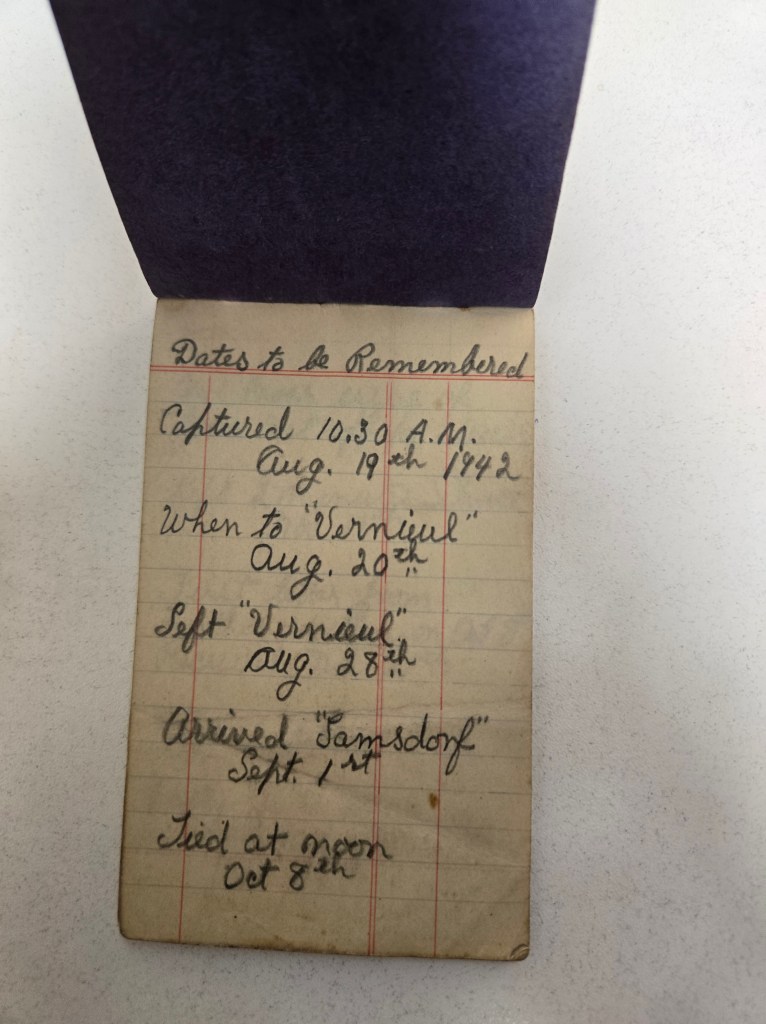 Dates to be Remembered
Captured 10.30 A.M.
Aug. 19th 1942
When to "Vernieul"
Aug. 20th
Left "Vernieul"
Aug. 28th
Arrived "Lamsdorf"
Sept. 1st
Tied at noon
Oct 8th